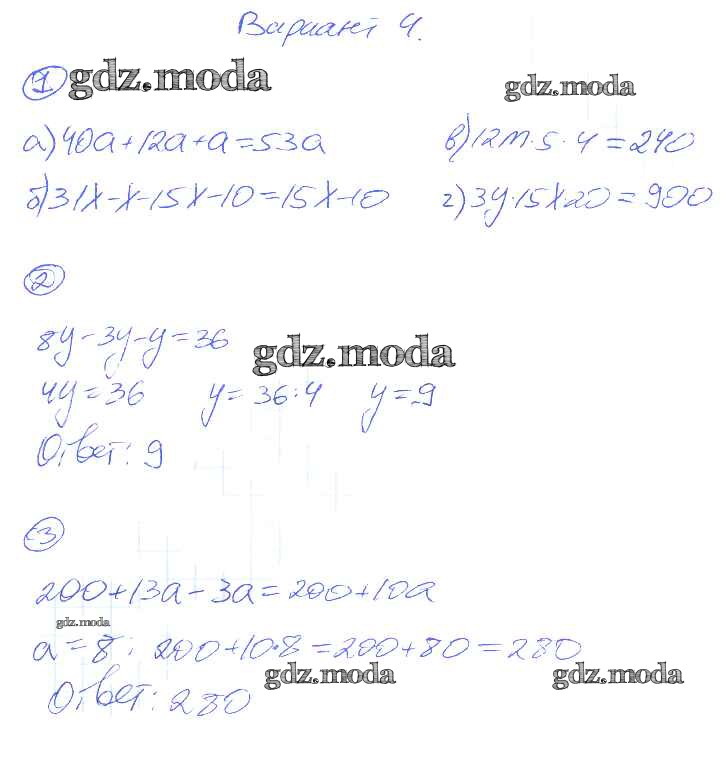 Вариант 4.
1 gdz.moda gdz.moda
а) 40a+12a+a=53a в) 12m·5·4=240
б) 31x-x-15x-10=15x-10 г) 3y·15x20=900
2
8y-3y-y=36
gdz.moda
4y=36 y=36:4 y=9
Ответ: 9
3
200+13a-3a=200+10a
gdz.moda
a=8; 200+10·8=200+80=280
gdz.moda gdz.moda
Ответ: 280